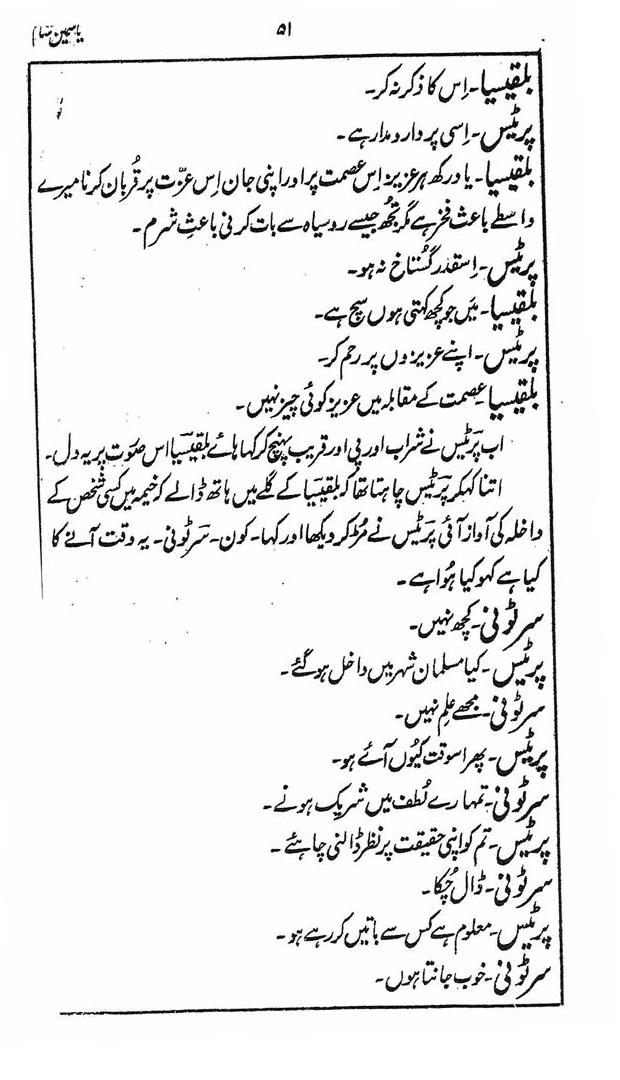 ۵۱
یاسمین شام
بلقیسیا۔ اِس کا ذکر نہ کر۔
پرٹیس۔ اِسی پر دارومدار ہے۔
بلقیسیا۔ یاد رکھ ہر عزیز اِس عصمت پر اور اپنی جان اِس عزّت پر قُربان کرنا میرے
واسطے باعث فخر ہے مگر تجُھ جیسے روسیاہ سے بات کرنی باعثِ شرم۔
پرٹیس۔ اِسقدر گُستاخ نہ ہو۔
بلقیسیا۔ میَں جو کچُھ کہتی ہوں سچ ہے۔
پرٹیس۔ اپنے عزیزوں پر رحم کر۔
بلقیسیا۔ عصمت کے مقابلہ میں عزیز کوئی چیز نہیں۔
اب پرٹیس نے شراب اور پی اور قریب پہنچ کر کہا ہائے بلقیسیا اس صوُرت پر یہ دل۔
اتنا کہکر پرٹیس چاہتا تھا کہ بلقیسیا کے گلے میں ہاتھ ڈالے کہ خیمہ میں کسی شخص کے
داخلہ کی آواز آئی پرٹیس نے مُڑ کر دیکھا اور کہا۔ کون۔ سرٹونی۔ یہ وقت آنے کا
کیا ہے کہو کیا ہُوا ہے۔
سرٹونی۔ کچُھ نہیں۔
پرٹیس۔ کیا مسلمان شہر میں داخل ہو گئے۔
سرٹونی۔ مجھے عِلم نہیں۔
پرٹیس۔ پھر اسوقت کیُوں آئے ہو۔
سرٹونی۔ تمہارے لُطف میں شریک ہونے۔
پرٹیس۔ تم کو اپنی حقیقت پر نظر ڈالنی چاہئے۔
سرٹونی۔ ڈال چُکا۔
پرٹیس۔ معلوم ہے کس سے باتیں کر رہے ہو۔
سرٹونی۔ خوب جانتا ہوں۔